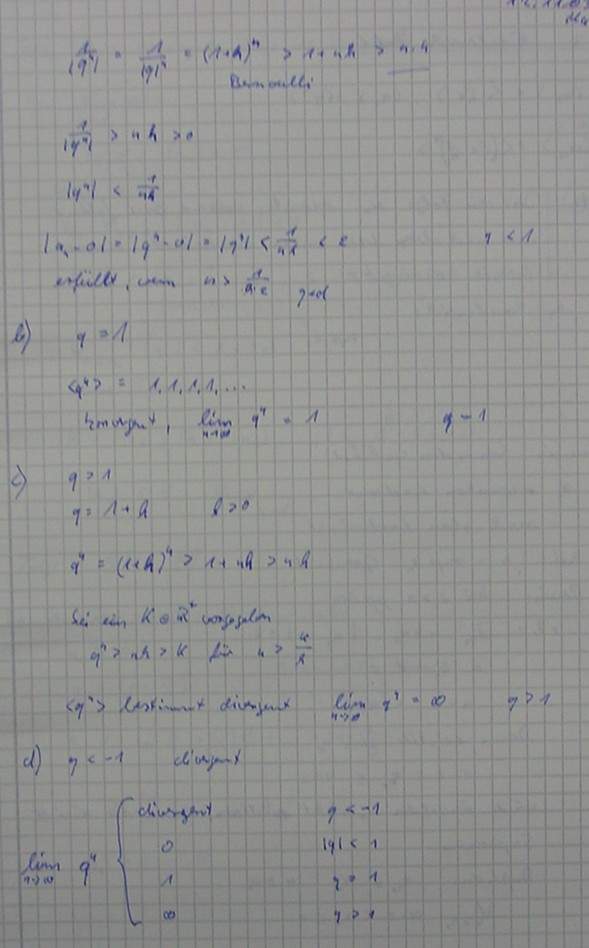 1/|qⁿ| = 1/|q|ⁿ = (1+h)ⁿ > 1+nh > n·h
Bernoulli
1/|qⁿ| > nh > 0
|qⁿ| < 1/nh
|aₙ-0| = |qⁿ-0| = |qⁿ| < 1/nh < ε q < 1
erfüllt, wenn n > 1/h·ε
b) q = 1
<qⁿ> = 1, 1, 1, 1, ...
konvergent, lim n→∞ qⁿ = 1 q = 1
c) q > 1
q = 1+h h > 0
qⁿ = (1+h)ⁿ > 1+nh > nh
Sei ein K ∈ ℝ⁺ vorgegeben
qⁿ > nh > K für n > K/h
<qⁿ> bestimmt divergent lim n→∞ qⁿ = ∞ q > 1
d) q < -1 divergent
lim n→∞ qⁿ { divergent q < -1
0 |q| < 1
1 q = 1
∞ q > 1